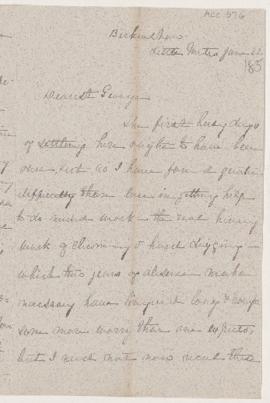 ACC 576
Little Metis June 22
183
Dearest George
The first busy days
of settling here ought to have been
over but as I have found greater
difficulty than ever in getting help
to do and work - the real heavy
work of cleaning & hard digging -
which two years of absence makes
necessary have long &
some more worry than one expects,
but I must not now this